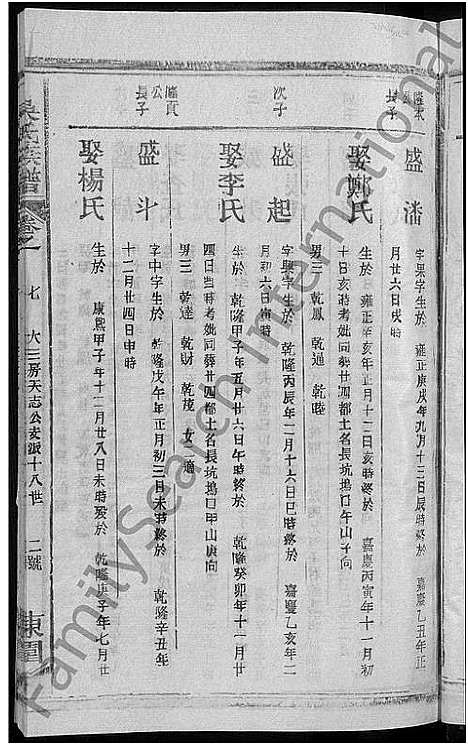 隆
公
長子
盛潘
字果字生於 雍正庚戌年九月十三日辰時終於 嘉慶乙丑年正
月廿六日戌時
娶鄭氏
生於 雍正辛亥年正月十二日亥時終於 嘉慶丙寅年十一月初
十日亥時考妣同葬廿四都土名長坑塢口午山子向
男三 乾鳳 乾通 乾陸
次子
盛起
字興字生於 乾隆丙辰年二月十六日巳時終於 嘉慶乙亥年二
月初六日寅時
娶李氏
生於 乾隆甲子年五月廿六日午時終於 乾隆癸卯年十一月廿
四日 時考妣同葬廿四都土名長坑塢口甲山庚向
男三 乾達 乾財 乾茂 女一適
隆貢
公
長子
盛斗
字中字生於 乾隆戊午年正月初三日未時終於 乾隆辛丑年
十二月廿四日申時
娶楊氏
生於 康熙甲子年十二月廿八日未時歿於 乾隆庚子年七月廿
吳氏宗譜 卷之一
七 大三房天志公支派十八世 二號
FamilySearch International